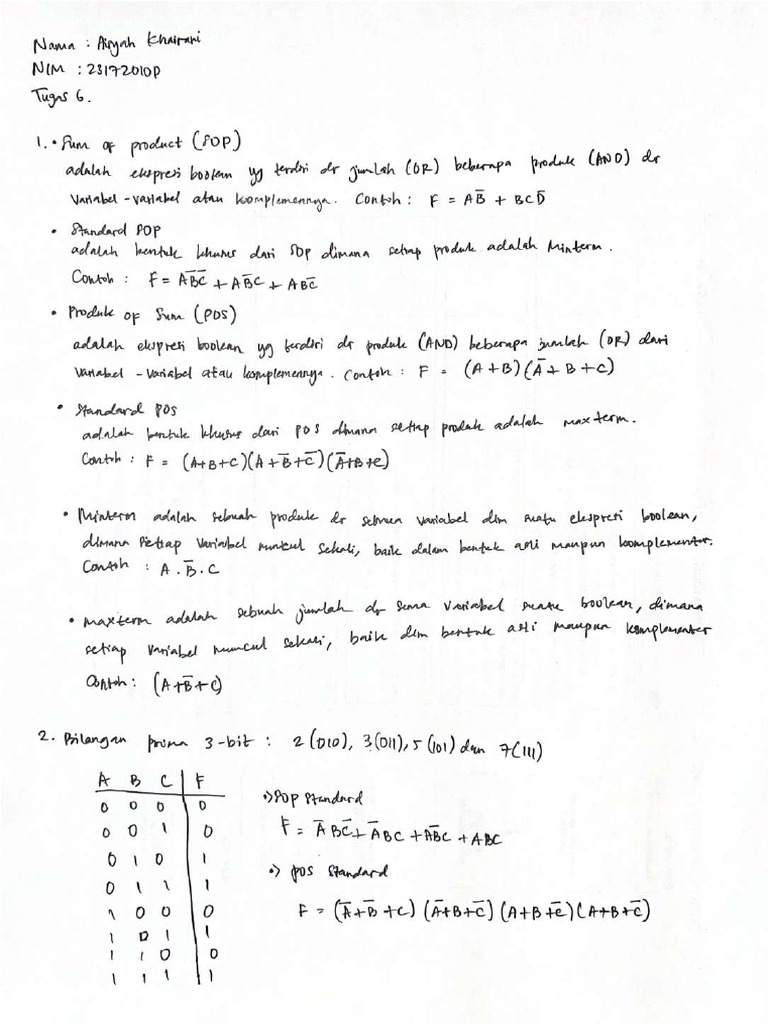 Nama : Aisyah Khairani
NIM : 23172010P
Tugas 6.
1. • Sum of product (SOP)
adalah ekspresi boolean yg terdiri dr jumlah (OR) beberapa produk (AND) dr
Variabel-variabel atau komplemennya. Contoh : F = AB̅ + BCD̅
• Standard SOP
adalah bentuk khusus dari SOP dimana setiap produk adalah Minterm.
Contoh : F = AB̅C̅ + AB̅C + ABC̅
• Produk of Sum (POS)
adalah ekspresi boolean yg terdiri dr produk (AND) beberapa jumlah (OR) dari
Variabel-Variabel atau komplemennya. Contoh : F = (A+B)(A̅+B+C)
• Standard POS
adalah bentuk khusus dari POS dimana setiap produk adalah maxterm.
Contoh : F = (A+B+C)(A+B̅+C̅)(A̅+B+C)
• Minterm adalah sebuah produk dr semua variabel dlm suatu ekspresi boolean,
dimana setiap variabel muncul sekali, baik dalam bentuk asli maupun komplementer.
Contoh : A.B̅.C
• maxterm adalah sebuah jumlah dr semua Variabel suatu boolean, dimana
setiap variabel muncul sekali, baik dlm bentuk asli maupun komplementer
Contoh: (A+B̅+C)
2. Bilangan prima 3-bit : 2(010), 3(011), 5(101) dan 7(111)
A B C F
0 0 0 0
0 0 1 0
0 1 0 1
0 1 1 1
1 0 0 0
1 0 1 1
1 1 0 0
1 1 1 1
•) SOP standard
F = A̅BC̅ + A̅BC + AB̅C + ABC
•) POS standard
F = (A̅+B̅+C)(A̅+B+C̅)(A+B+C̅)(A+B+C̅)